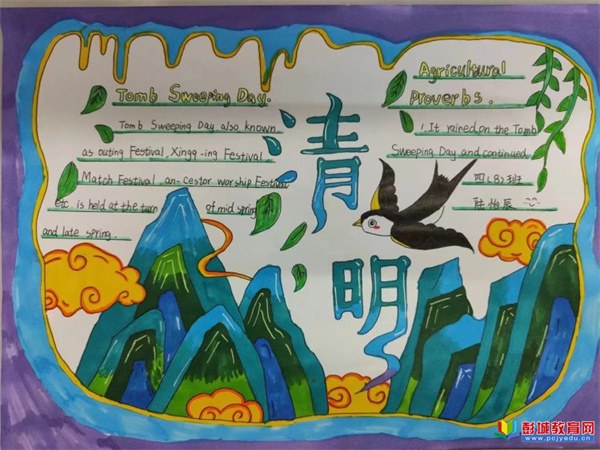 Tomb Sweeping Day.
Tomb Sweeping Day, also known
as outing Festival, Xingq-ing Festival
Match Festival, an-cestor worship Festival
etc. is held at the turn of mid spring
and late spring.
清
明
Agricultural
Proverbs.
1. It rained on the Tomb
Sweeping Day and continued
四(8)班
陆怡辰
彭城教育网
www.pcjyedu.cn